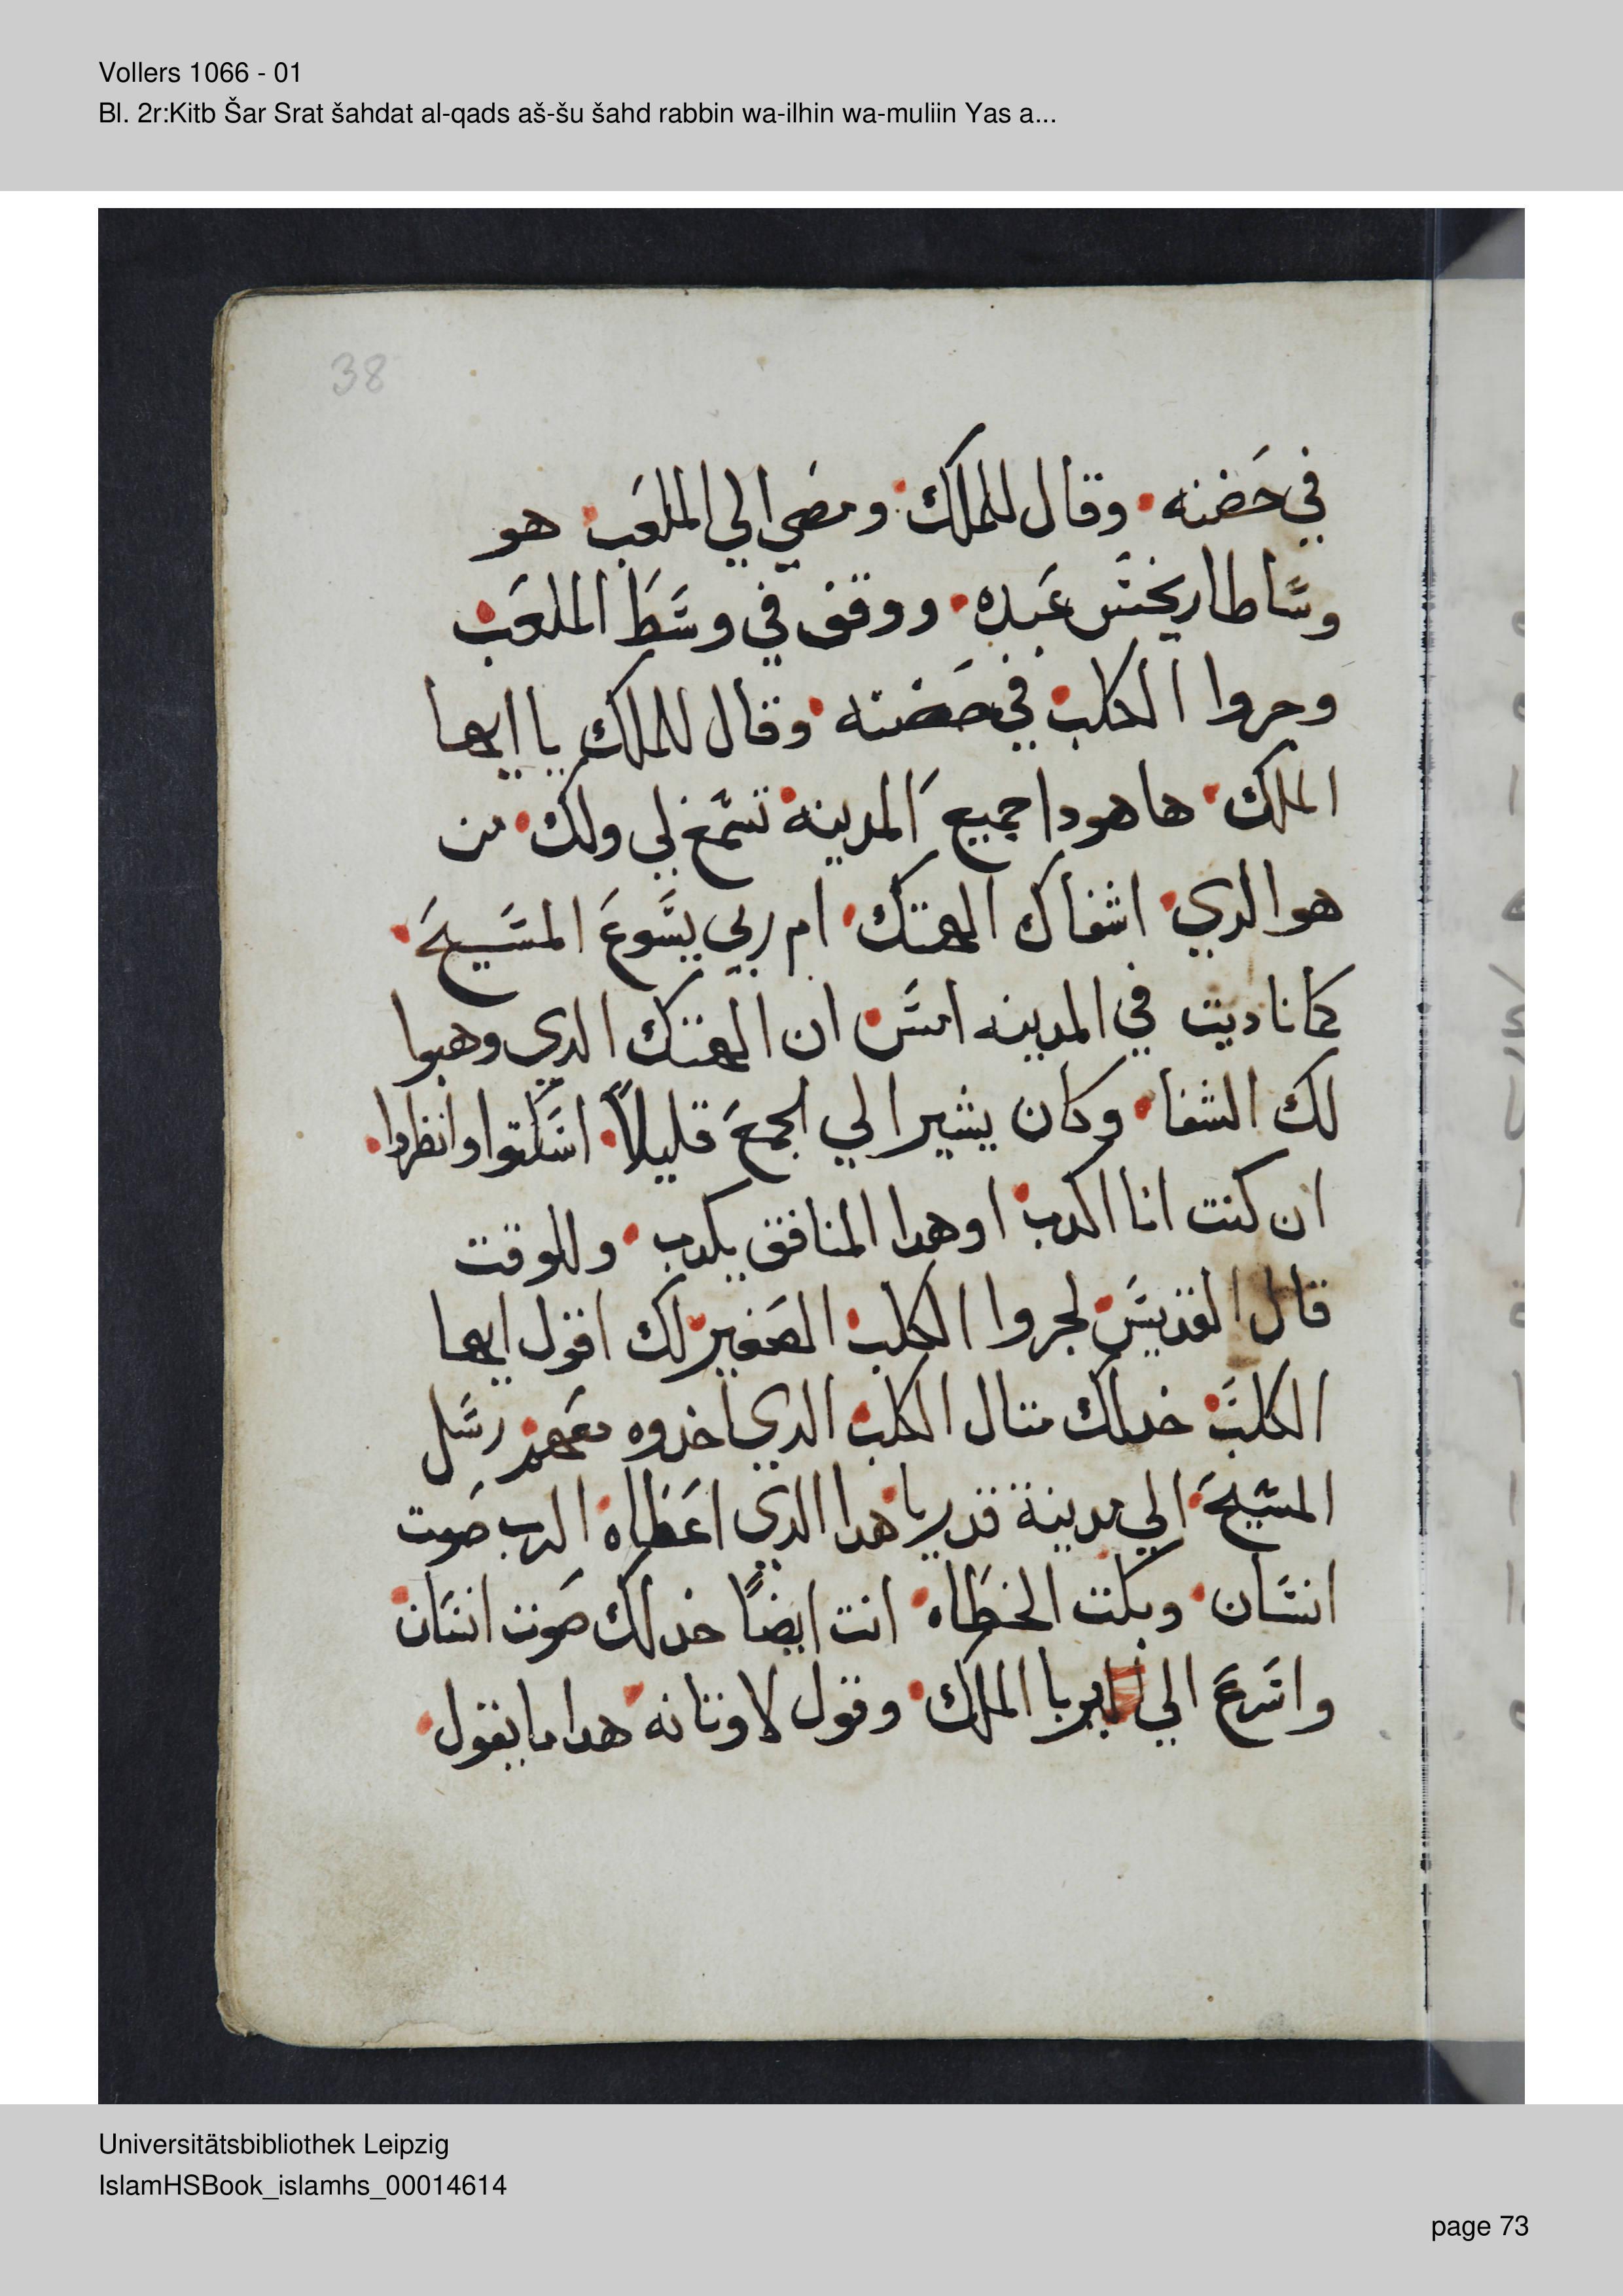 Vollers 1066 - 01
Bl. 2r:Kitb Šar Srat šahdat al-qads aš-šu šahd rabbin wa-ilhin wa-muliin Yas a...
38
في حَضنه • وقال للملك • ومضي الي الملعَب • هو
وسَاطاريخسَ عَبده • ووقف في وسَطَ الملعَب •
وجروا الكلب • في حَضنه • وقال للملك يا ايها
الملك • ها هودا جميع المدينه • تسَمع لي ولك • من
هو الدي • اشفاك الهتك • ام ربي يسَوعَ المسَيحَ •
كما ناديت في المدينه امسَ • ان الهتك الدي وهبوا
لك الشفا • وكان يشير الي الجمعَ قليلاً • اسَكتوا وانظروا •
ان كنت انا اكدب • او هدا المنافق يكدب • وللوقت
قال القديسَ • لجروا الكلب • الصَغير • لك اقول ايها
الكلبَ • خد لك متال الكلب • الدي اخدوه معَهم • رسَل
المسَيحَ • الي مدينة قديريا • هدا الدي اعَطاه • الرب صَوت
انسَان • وبكت الخطَاه • انت ايضاً خد لك صَوت انسَان •
واسَرعَ الي ابريا الملك • وقول لاوتانه • هدا ما يقول •
Universitätsbibliothek Leipzig
IslamHSBook_islamhs_00014614
page 73